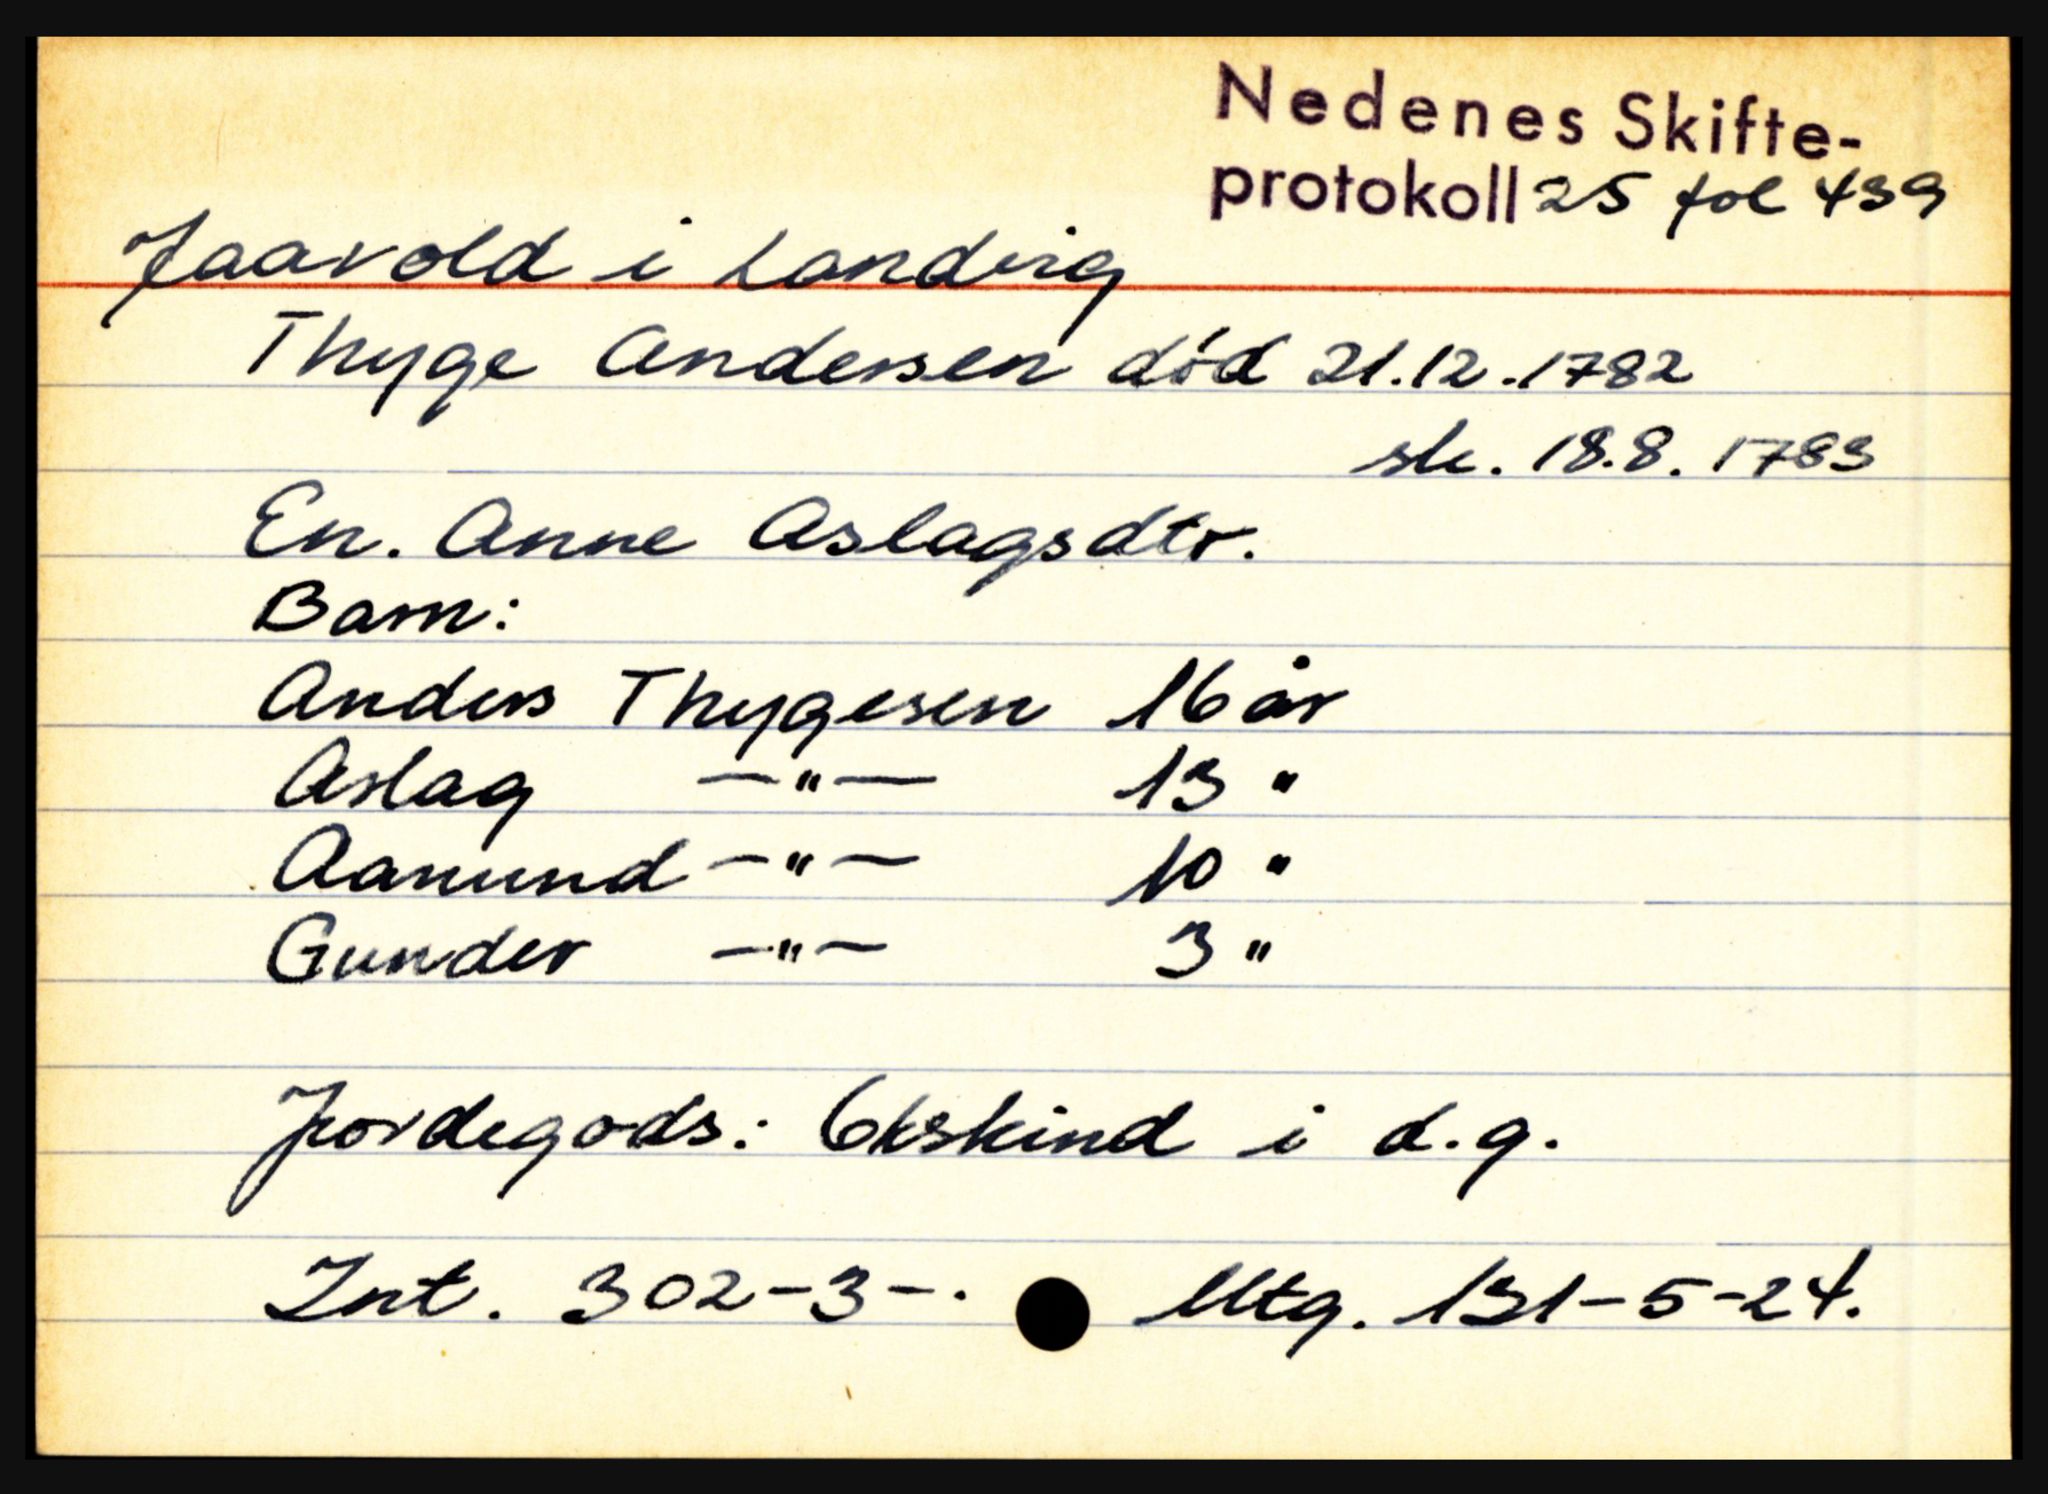 Nedenes Skifte-
protokoll 25 fol 439
Jaavold i Landvig
Thyge Andersen död 21.12.1782
sk. 18.8.1783
En. Anne Aslagsdtr.
Barn:
Anders Thygesen 16 år
Aslag —"— 13 "
Aamund —"— 10 "
Gunder —"— 3 "
Jordegods: 6 kskind i d.g.
Int. 302-3-.
Utg. 131-5-24.